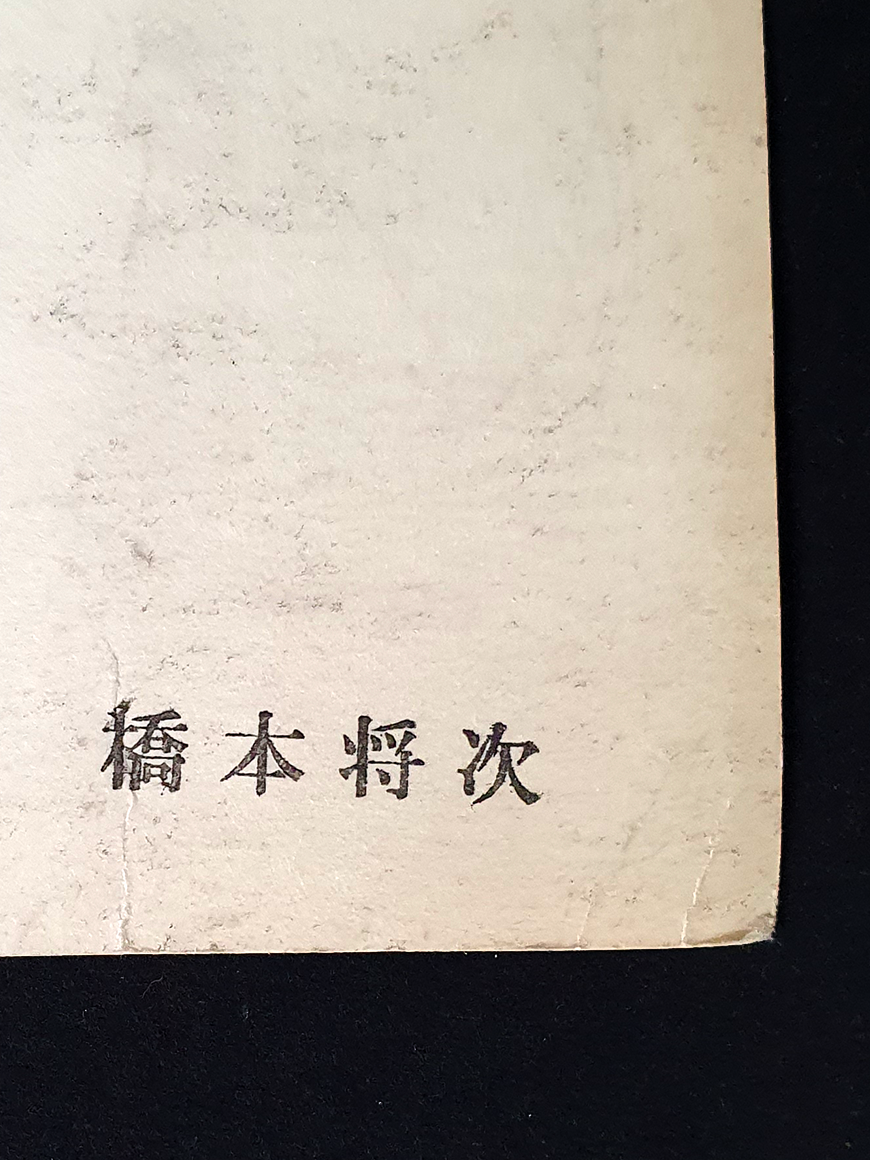 橋本将次